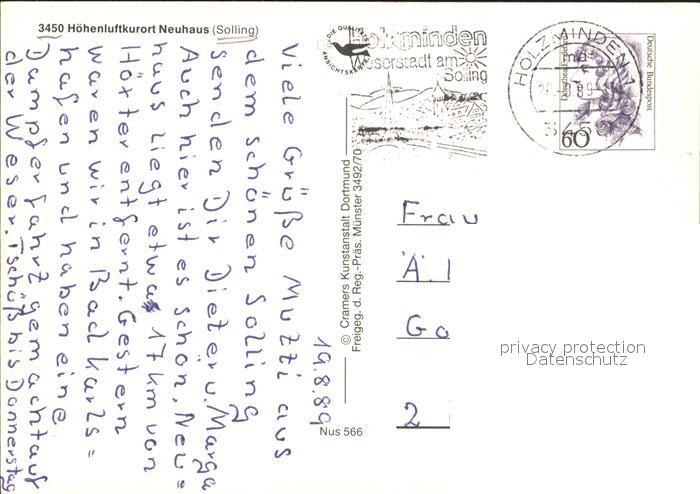 3450 Höhenluftkurort Neuhaus (Solling)
19.8.89
Viele Grüße Mutti aus
dem schönen Solling
senden Dir Dieter u. Marga
Auch hier ist es schön. Neu=
haus liegt etwa 17 km von
Höxter entfernt. Gestern
waren wir in Bad Karls=
hafen und haben eine
Dampferfahrt gemacht auf
der Weser. Tschüß bis Donnerstag
© Cramers Kunstanstalt Dortmund
Freigeg. d. Reg.-Präs. Münster 3492/70
Nus 566
DIE QUALITÄTS
ANSICHTSKARTE
Holzminden
Weserstadt am
Solling
HOLZMINDEN 1
md
89
3450
Deutsche Bundespost
60
Frau
Ä.
Go
2
privacy protection
Datenschutz